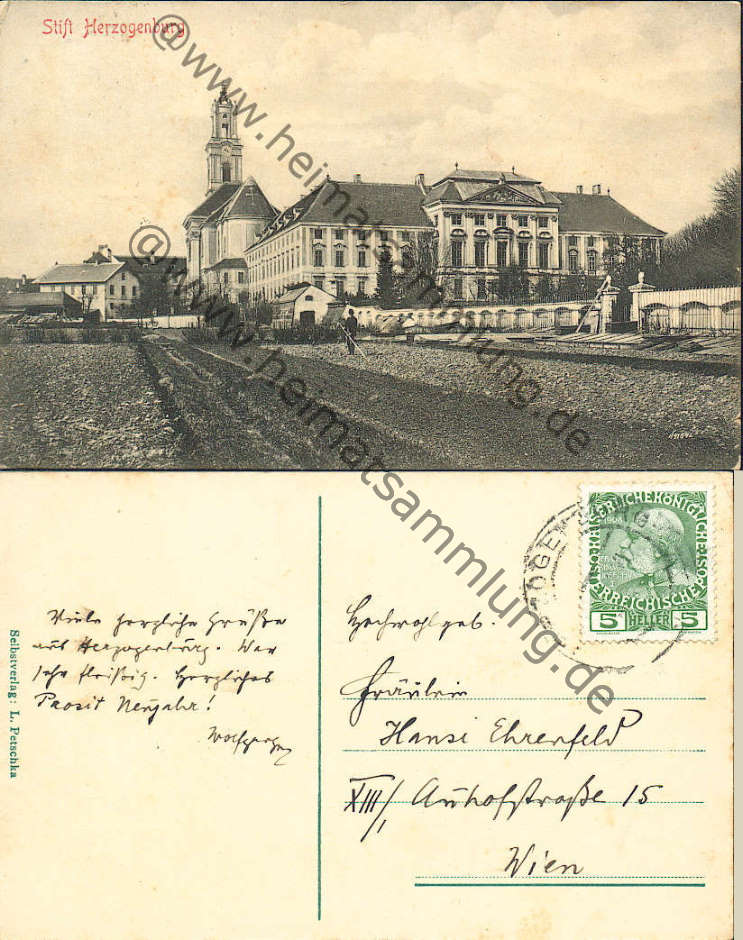 Stift Herzogenburg
@www.heimatsammlung.de
@www.heimatsammlung.de
Viele herzliche Grüße
aus Herzogenburg. War
sehr fleißig. Herzliches
Prosit Neujahr!
Wolfgang
Selbstverlag: L. Petschka
1908
5 HELLER 5
Hochwohlgeb.
Fräulein
Hansi Ehrenfeld
XIII/1 Auhofstraße 15
Wien